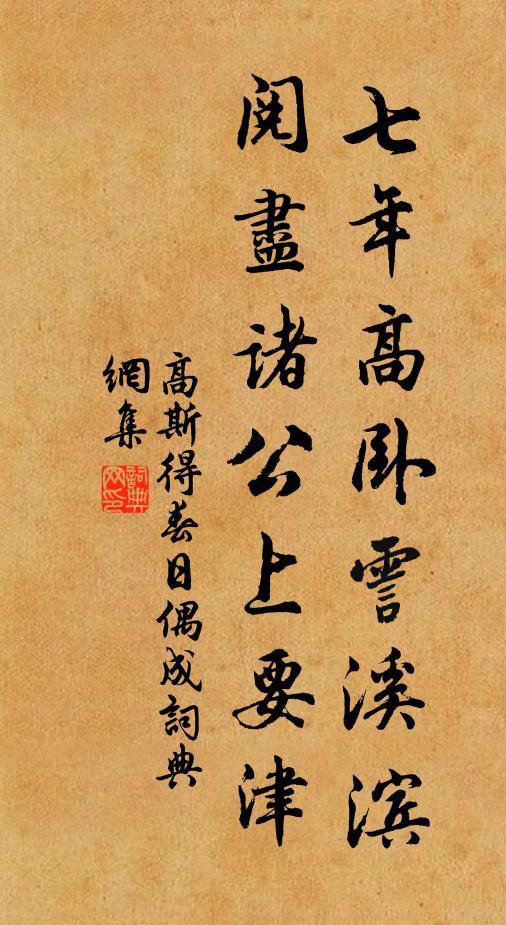 七年高卧霅溪滨
阅盡诸公上要津
高斯得春日偶成詞典
網集
詞典网印